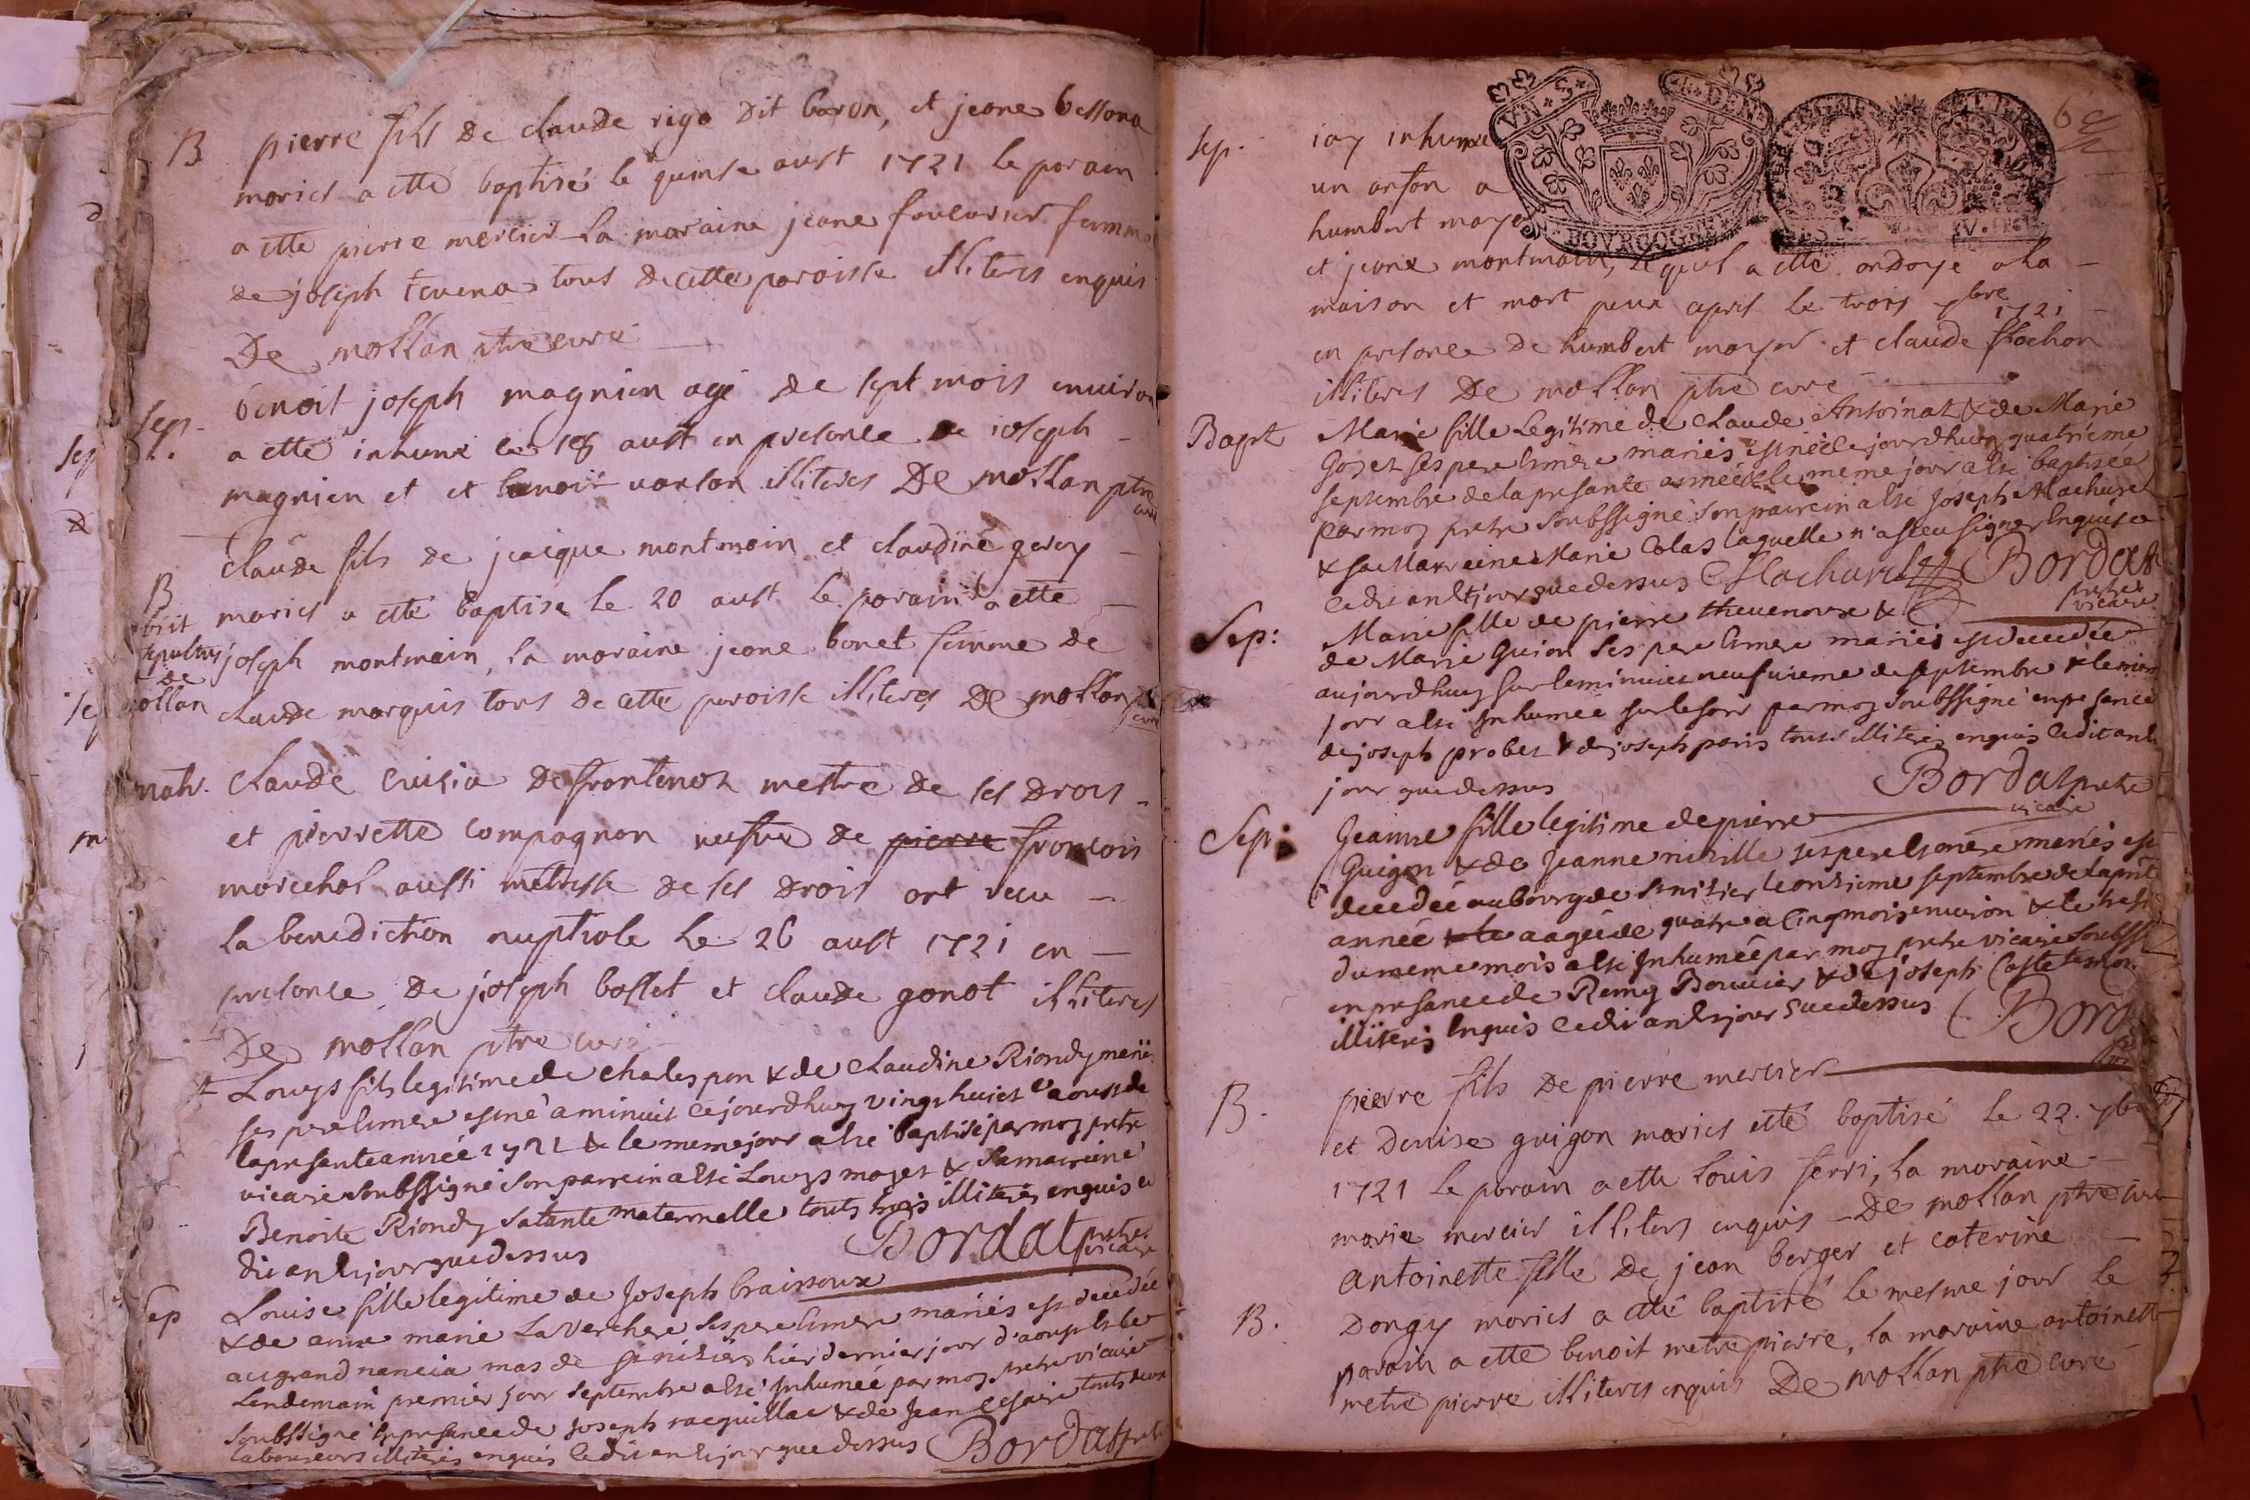 B pierre fils de claude rigo dit baron, et jeane bessona
mariés a etté baptisé le quinse aust 1721 le parain
a ette pierre mercier la maraine jeane femme
de joseph tevena tous de cette paroisse illiteres enquis
De mollan ptre curé
Sep. benoit joseph magnien agé de sept mois environ
a etté inhumé le 18 aust en presence de joseph
magnien et et benoit illiteres De mollan ptre
curé
B claude fils de jacque montmain et claudine
mariés a etté baptisé le 20 aust le parain a ette
joseph montmain, la maraine jeane bonet femme de
claude marquis tous de cette paroisse illiteres De mollan
huit
sepultures
de
mollan
claude de frontenoz mestre de ses drois
et pierrette compagnon veſve de pierre francois
marechal aussi metresse de ses drois ont recu
la benediction nuptiale le 26 aust 1721 en
presence de joseph bosset et claude gonot illiteres
De mollan ptre curé
Louys fils legitime de charles pon & de claudine Riondy mariés
ses pere & mere est né a minuit ce jourdhuy vingt huict aoust de
la presente année 1721 & le meme jour a esté baptisé par moy prtre
vicaire soubssigné son parrein a esté Louys moget & sa marreine
Benoite Riondy sa tante maternelle touts trois illiteres enquis ce
dit an & jour que dessus Bordat prtre
vicaire
Sep Louise fille legitime de Joseph
& de anne marie La Verchere ses pere & mere mariés est decedée
au grand nancia mas de hier dernier jour d'aoust & le
Lendemain premier jour septembre a esté Inhumée par moy prtre vicaire
soubssigné En presance de Joseph & de Jean touts deux
laboureurs illiteres enquis ledit an & jour que dessus Bordat prtre
6
VN S DEN
BOVRGOGNE
Sep. iay inhumé
un anfan a
humbert moyer
et jeane montmain, lequel a etté ondoyé a la
maison et mort peux apres le trois 7bre
1721
en presence de humbert moyer et claude flochon
illiteres De mollan ptre curé
Bapt Marie fille Legitime de Claude Antoinat & de Marie
Goyet ses pere & mere mariés est née ce jourdhuy quatrieme
septembre de la presante année & le meme jour a esté baptisée
par moy prtre soubssigné son parrein a esté Joseph Machuret
& sa Marreine Marie Colas laquelle n'a sceu signer Enquise
Ledit an & jour que dessus Machuret Bordat
prtre
vicaire
Sep: Marie fille de pierre thevenoux &
de Marie Guion ses pere & mere mariés est decedée
aujourdhuy sur le minuict neufvieme de septembre & le mesme
jour a esté Inhumée sur le soir par moy soubssigné en presence
de joseph probet & de joseph paris touts illiteres enquis ledit an &
jour que dessus Bordat prtre
vicaire
Sep: Jeanne fille legitime de pierre
Guigon & de Jeanne niville ses pere & mere mariés est
decedée au bourg de St nisier le onzieme septembre de la pnte
année & le aagée de quatre a Cinq mois environ & le
du meme mois a esté Inhumée par moy prtre vicaire soubssi
en presance de Remy Bouvier & de joseph
illiteres Enquis ledit an & jour que dessus Bord
B. pierre fils de pierre mercier
et denise guigon mariés etté baptisé le 22. 7bre
1721 le parain a ette louis ferri, la maraine
marie mercier illiteres enquis De mollan ptre curé
B. antoinette fille de jean berger et caterine
Dongy mariés a etté baptisé le mesme jour le
parain a ette benoit metrepierre, la maraine antoinette
metrepierre illiteres enquis De mollan ptre curé